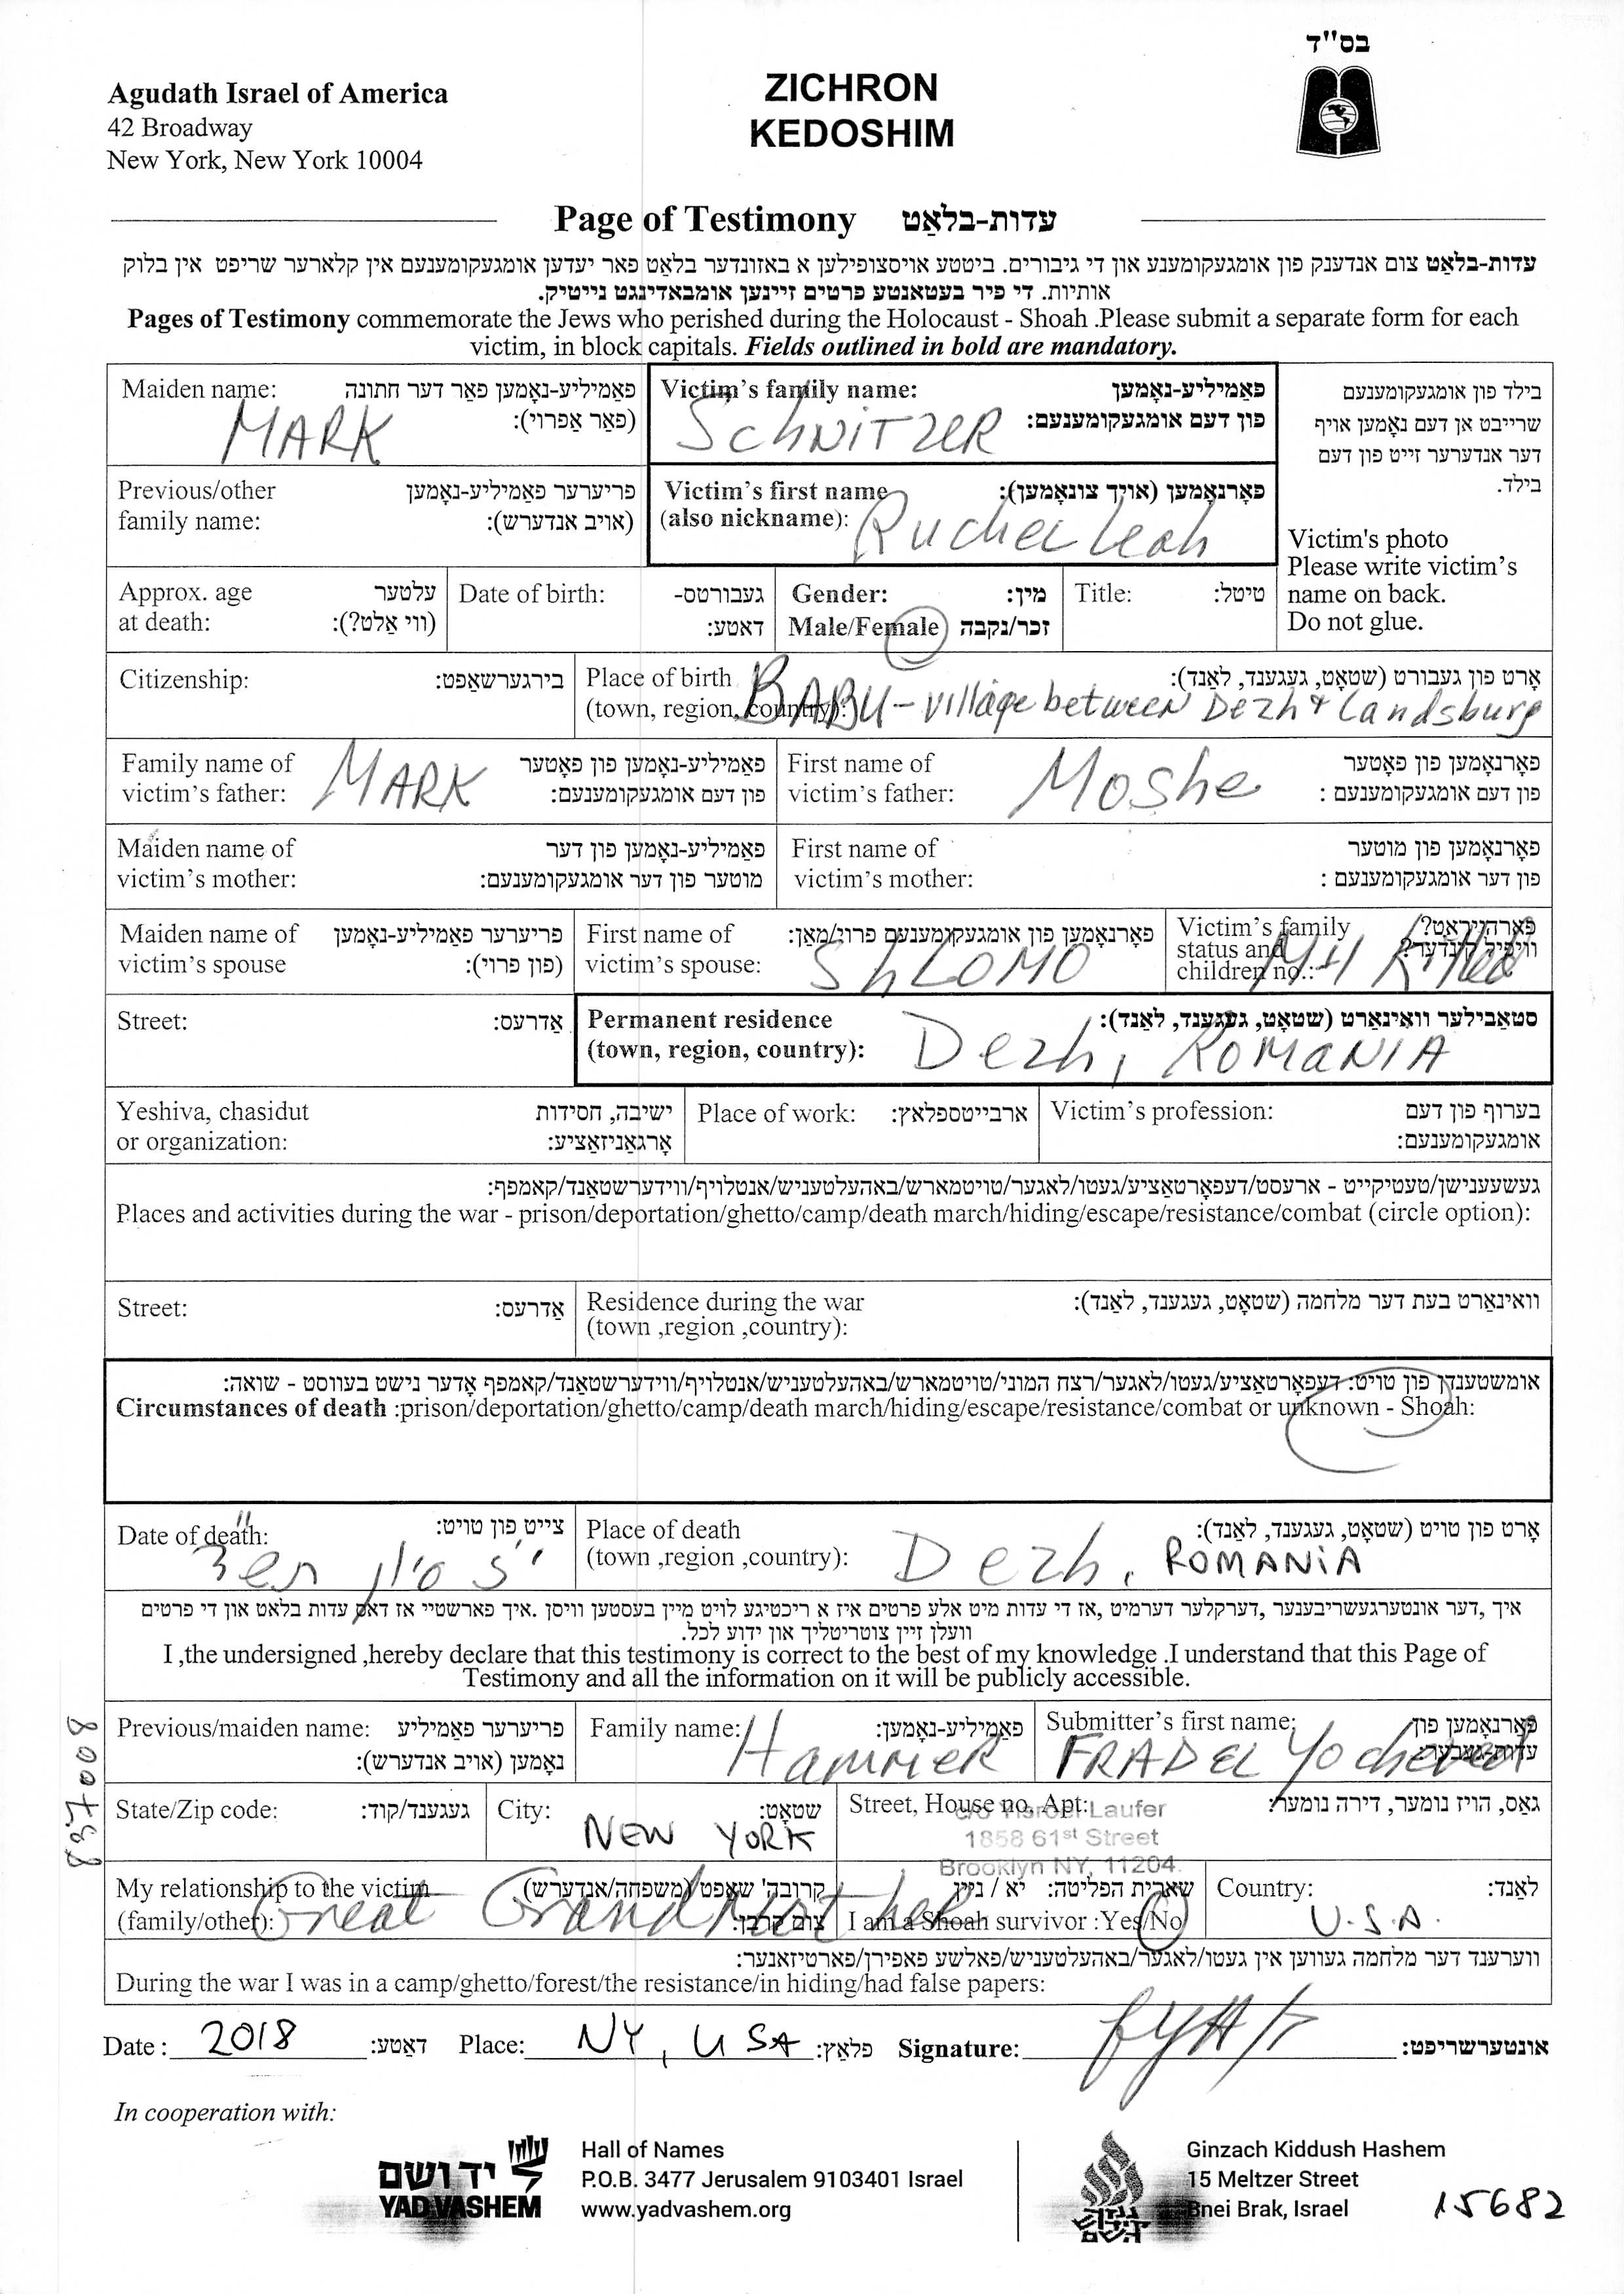 בס"ד
Agudath Israel of America
42 Broadway
New York, New York 10004
ZICHRON
KEDOSHIM
Page of Testimony עדות-בלאַט
עדות-בלאַט צום אנדענק פון אומגעקומענע און די גיבורים. ביטטע אויסצופילען א באזונדער בלאַט פאר יעדען אומגעקומענעם אין קלארער שריפט אין בלוק
אותיות. די פיר בעטאנטע פרטים זיינען אומבאדינגט נייטיק.
Pages of Testimony commemorate the Jews who perished during the Holocaust - Shoah .Please submit a separate form for each
victim, in block capitals. Fields outlined in bold are mandatory.
Maiden name: פאַמיליע-נאָמען פאַר דער חתונה
(פאַר אַפרוי):
MARK
Victim's family name: פאַמיליע-נאָמען
פון דעם אומגעקומענעם:
SCHNITZER
בילד פון אומגעקומענעם
שרייבט אן דעם נאָמען אויף
דער אנדערער זייט פון דעם
בילד.
Victim's photo
Please write victim's
name on back.
Do not glue.
Previous/other פריערער פאַמיליע-נאָמען
family name: (אויב אנדערש):
Victim's first name פאָרנאָמען (אויך צונאָמען):
(also nickname):
Ruchel Leah
Approx. age עלטער
at death: (ווי אַלט?):
Date of birth: געבורטס-
דאטע:
Gender: מין:
Male/Female זכר/נקבה
Title: טיטל:
Citizenship: בירגערשאַפט:
Place of birth אָרט פון געבורט (שטאָט, געגענד, לאַנד):
(town, region, country):
BABU - village between Dezh & Landsburg
Family name of פאַמיליע-נאָמען פון פאָטער
victim's father: פון דעם אומגעקומענעם:
MARK
First name of פאָרנאָמען פון פאָטער
victim's father: פון דעם אומגעקומענעם :
Moshe
Maiden name of פאַמיליע-נאָמען פון דער
victim's mother: מוטער פון דער אומגעקומענעם:
First name of פאָרנאָמען פון מוטער
victim's mother: פון דער אומגעקומענעם :
Maiden name of פריערער פאַמיליע-נאָמען
victim's spouse (פון פרוי):
First name of פאָרנאָמען פון אומגעקומענעם פרוי/מאַן:
victim's spouse:
ShLOMO
Victim's family פארהייראַט?
status and וויפיל קינדער?
children no.:
Killed
Street: אַדרעס:
Permanent residence סטאַבילער וואינאָרט (שטאָט, געגענד, לאַנד):
(town, region, country):
Dezh, ROMANIA
Yeshiva, chasidut ישיבה, חסידות
or organization: אָרגאַניזאַציע:
Place of work: ארבייטספלאץ:
Victim's profession: בערוף פון דעם
אומגעקומענעם:
געשעענישן/טעטיקייט - ארעסט/דעפאָרטאַציע/געטו/לאגער/טויטמארש/באהעלטעניש/אנטלויף/ווידערשטאַנד/קאמפף:
Places and activities during the war - prison/deportation/ghetto/camp/death march/hiding/escape/resistance/combat (circle option):
Street: אַדרעס:
Residence during the war וואינאָרט בעת דער מלחמה (שטאָט, געגענד, לאַנד):
(town ,region ,country):
אומשטענדן פון טויט: דעפאָרטאַציע/געטו/לאגער/רצח המוני/טויטמארש/באהעלטעניש/אנטלויף/ווידערשטאַנד/קאמפף אָדער נישט בעווסט - שואה:
Circumstances of death :prison/deportation/ghetto/camp/death march/hiding/escape/resistance/combat or unknown - Shoah:
Date of death: צייט פון טויט:
י"ז סיון תש"ד
Place of death אָרט פון טויט (שטאָט, געגענד, לאַנד):
(town ,region ,country):
Dezh, ROMANIA
איך ,דער אונטערגעשריבענער ,דערקלער דערמיט ,אז די עדות מיט אלע פרטים איז א ריכטיגע לויט מיין בעסטען וויסן .איך פארשטיי אז דאס עדות בלאט און די פרטים
וועלן זיין צוטריטליך און ידוע לכל.
I ,the undersigned ,hereby declare that this testimony is correct to the best of my knowledge .I understand that this Page of
Testimony and all the information on it will be publicly accessible.
Previous/maiden name: פריערער פאַמיליע
נאָמען (אויב אנדערש):
Family name: פאַמיליע-נאָמען:
Hammer
Submitter's first name: פאָרנאָמען פון
עדות-געבער:
FRADEL Yocheved
State/Zip code: געגענד/קוד:
City: שטאָט:
NEW YORK
Street, House no, Apt: גאַס, הויז נומער, דירה נומער:
c/o Yisroel Laufer
1858 61st Street
Brooklyn NY, 11204
My relationship to the victim קרובה' שאפט (משפחה/אנדערש)
(family/other): צום קרבן:
Great Grandmother
שארית הפליטה: יא / ניין
I am a Shoah survivor :Yes/No
Country: לאַנד:
U.S.A.
ווערענד דער מלחמה געווען אין געטו/לאגער/באהעלטעניש/פאלשע פאפירן/פארטיזאנער:
During the war I was in a camp/ghetto/forest/the resistance/in hiding/had false papers:
Date : 2018 דאטע: Place: NY, USA פלאַץ: Signature: אונטערשריפט:
In cooperation with:
יד ושם
YAD VASHEM
Hall of Names
P.O.B. 3477 Jerusalem 9103401 Israel
www.yadvashem.org
גנזך קידוש השם
Ginzach Kiddush Hashem
15 Meltzer Street
Bnei Brak, Israel
15682
8370008